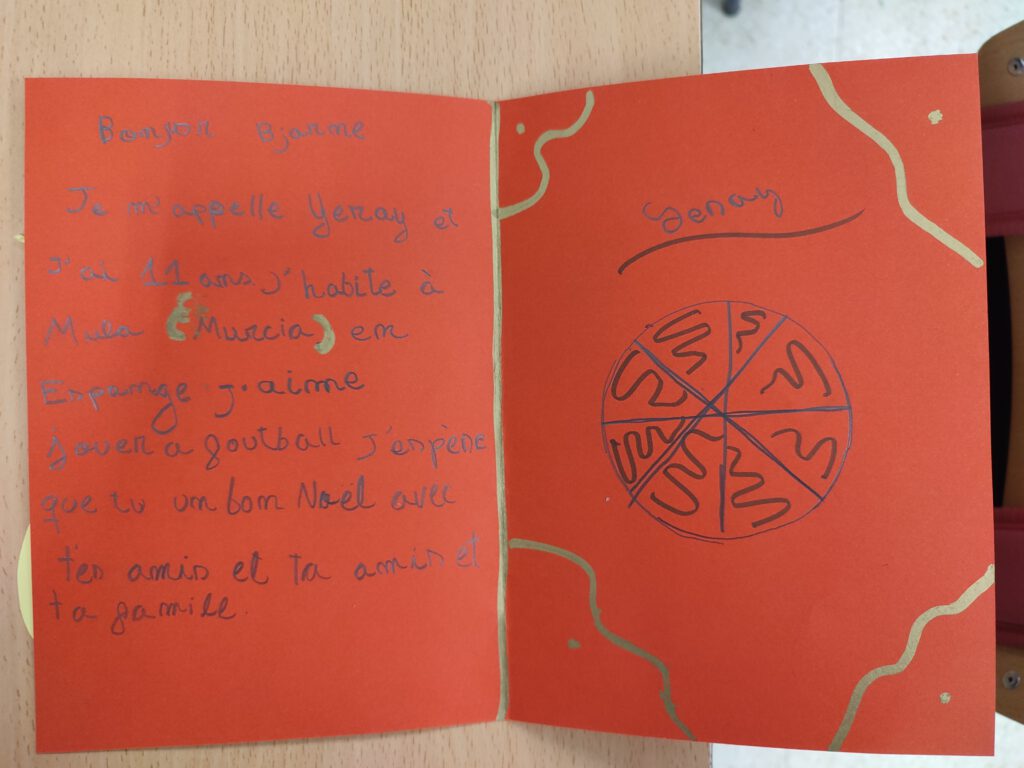 Bonjor Bjarme
Je m'appelle Yeray et
J'ai 11 ans. J'habite à
Mula (Murcia) en
Espange j'aime
jouer a foutball J'espère
que tu un bon Noël avec
t'es amis et ta amis et
ta famille.
Yeray